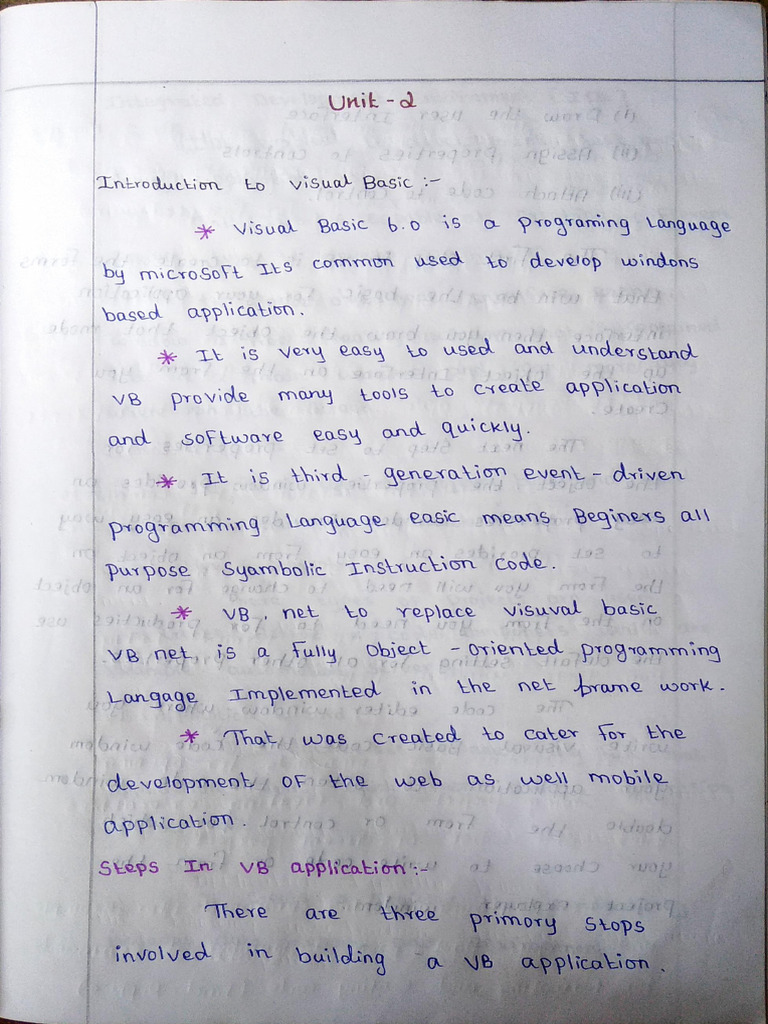 Unit - 2
Introduction to visual Basic :-
* Visual Basic 6.0 is a programing Language
by microsoft Its common used to develop windons
based application.
* It is very easy to used and understand
VB provide many tools to create application
and software easy and quickly.
* It is third - generation event - driven
programming Language easic means Beginers all
purpose Syambolic Instruction code.
* VB. net to replace visuval basic
VB net is a fully object - oriented programming
Langage Implemented in the net frame work.
* That was created to cater for the
development of the web as well mobile
application.
Steps In VB application :-
There are three primory stops
involved in building a VB application.